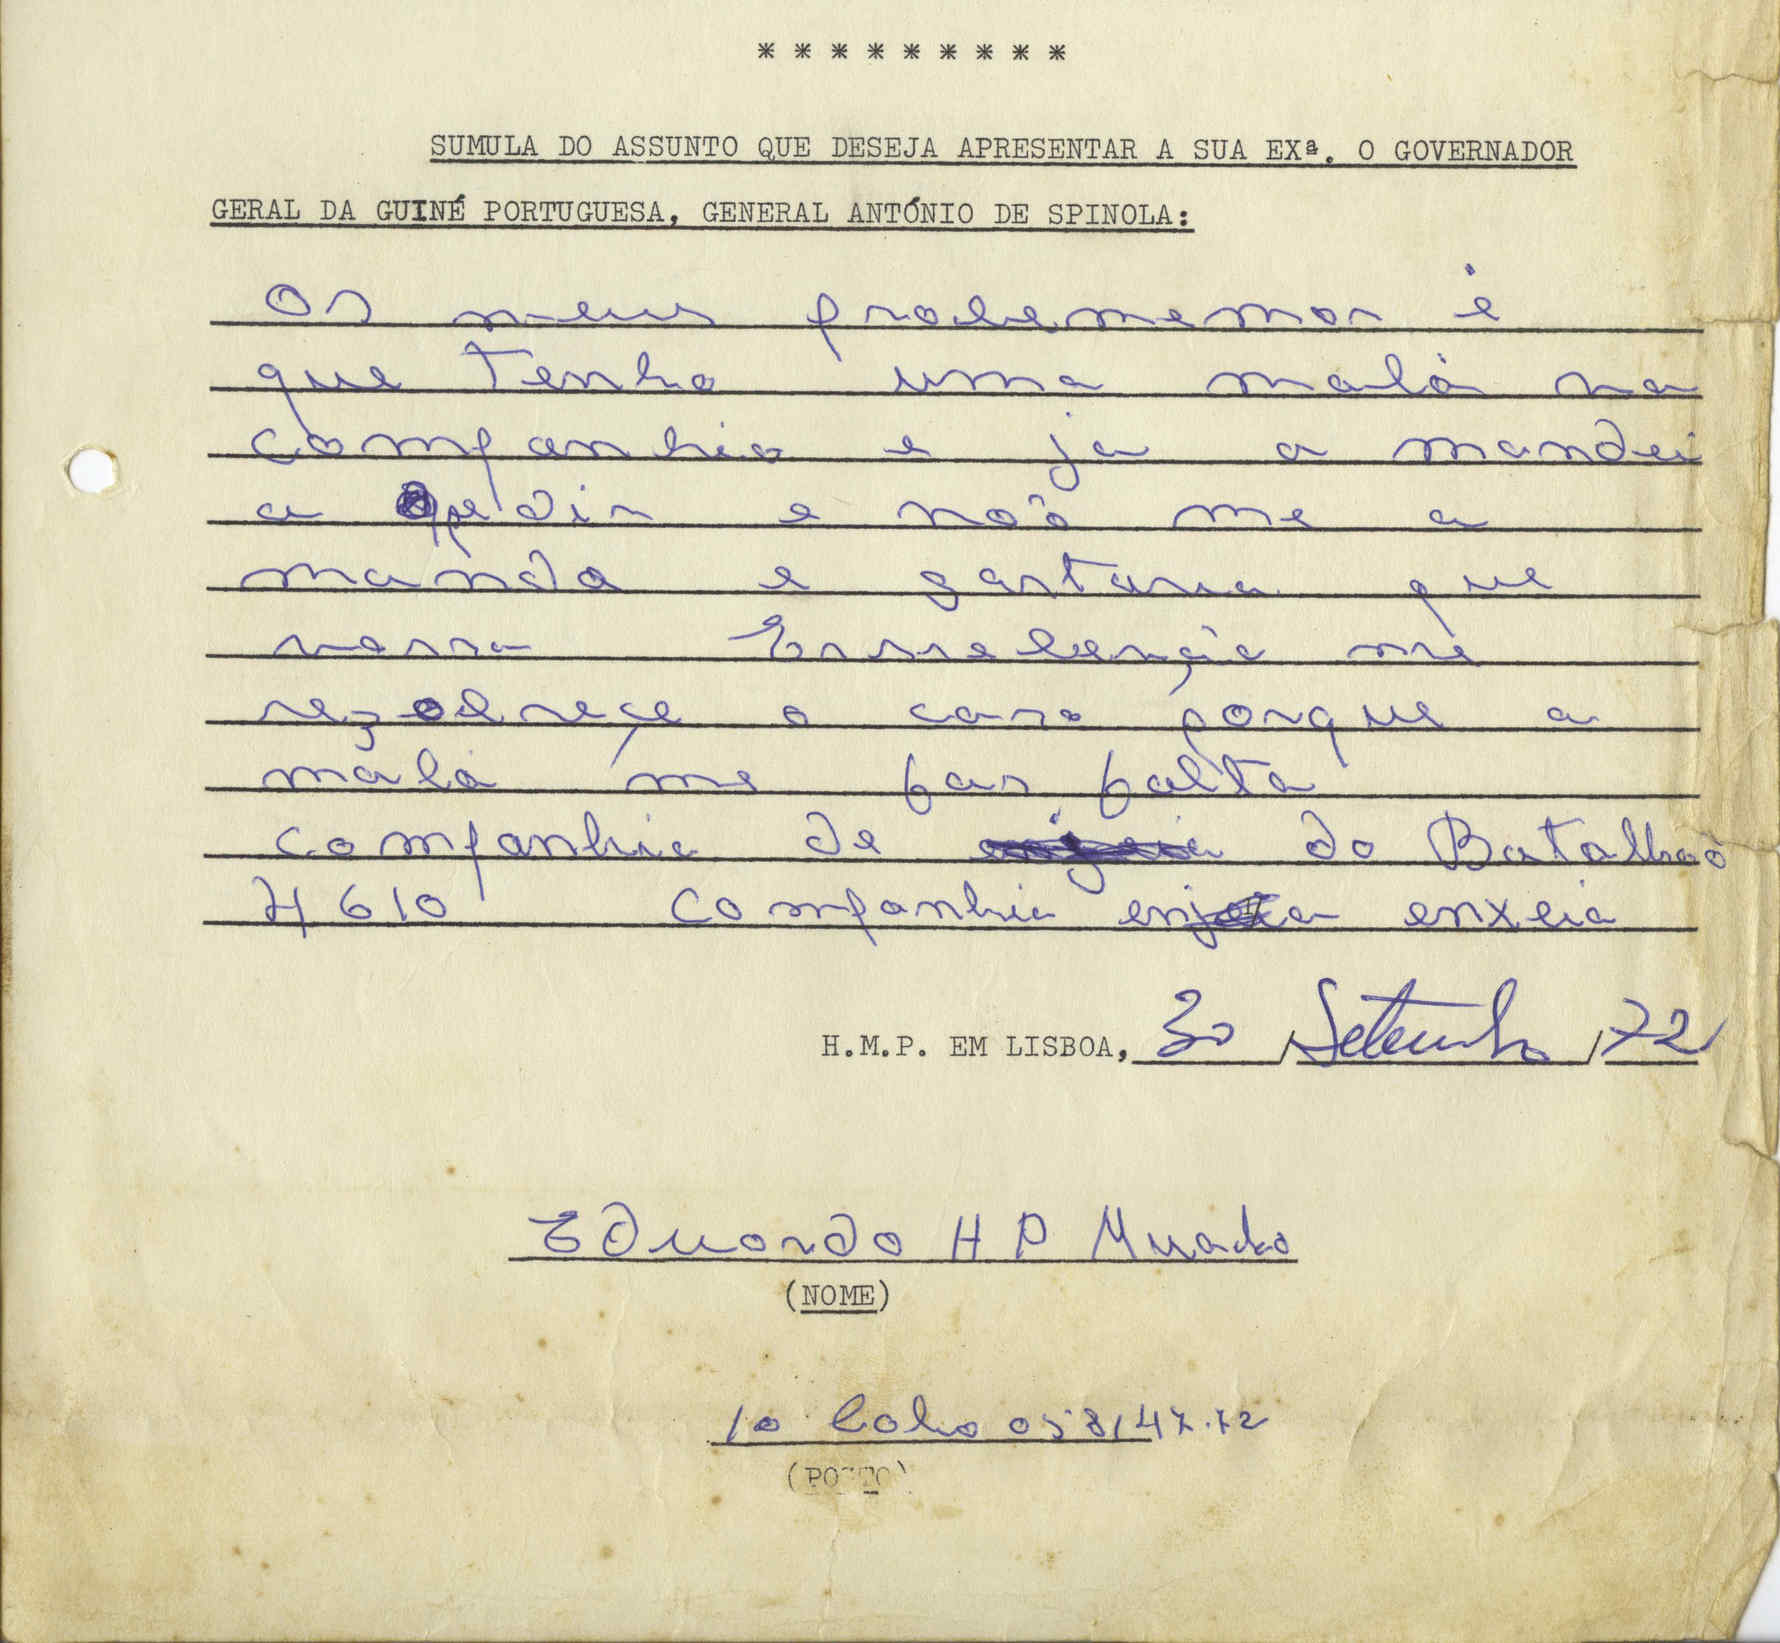 * * * * * * * * *
SUMULA DO ASSUNTO QUE DESEJA APRESENTAR A SUA EXª. O GOVERNADOR
GERAL DA GUINÉ PORTUGUESA, GENERAL ANTÓNIO DE SPINOLA:
Os meus é
que Tenho uma mala na
companhia e ja a mandei
a pedir e não me a
manda e gostaria que
vossa me
o caso porque a
mala me fas falta
companhia de do Batalhão
4610 Companhia enxeia
H.M.P. EM LISBOA, 30 / Setembro / 72
Eduardo H P
(NOME)
1o Cabo
(POSTO)